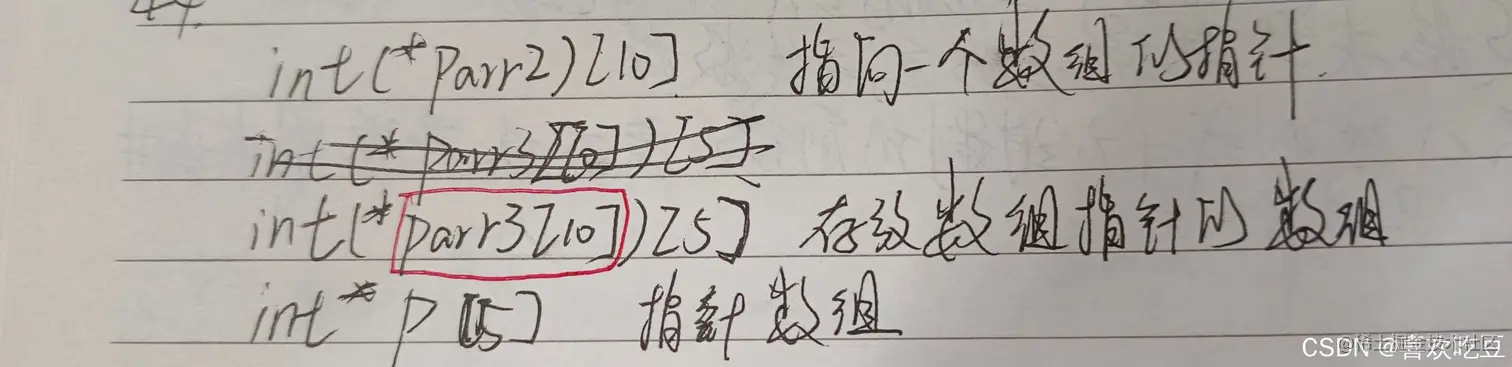 int(*parr2)[10] 指向一个数组的指针.
int(*parr3[10])[5]
int(*parr3[10])[5] 存放数组指针的数组
int* p[5] 指针数组
CSDN @喜欢吃豆